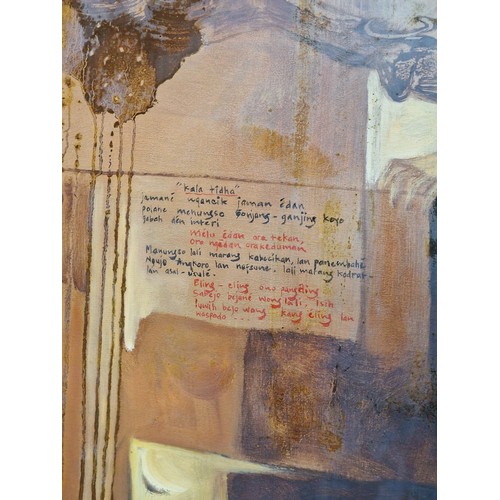 "Kala tidha"
jamane ngancik jaman édan
polane menungso gonjang-ganjing koyo
gabah den interi
Melu édan ora tekan,
ora ngedan ora keduman
Manungso lali marang kabecikan, lan panembahe
Ngujo Angkoro lan nafsune. lali marang kodrat-
lan asal-usule.
Eling-eling ono pangéling
Sabejo bejane wong lali. Isih
luwih bejo wong kang éling lan
waspodo ...